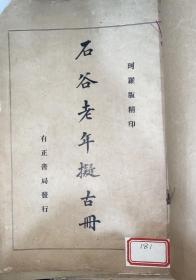 珂羅版精印
石谷老年擬古冊
有正書局發行
181